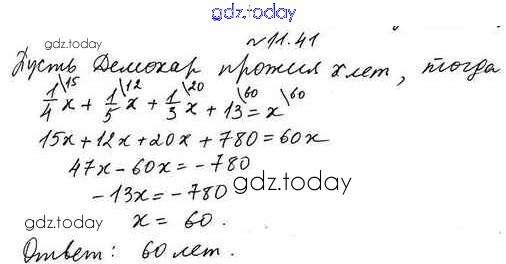 gdz.today
№11.41
gdz.today
Пусть Демохар прожил x лет, тогда
1/4\15 x + 1/5\12 x + 1/3\20 x + 13\60 = x\60
15x + 12x + 20x + 780 = 60x
47x - 60x = -780
-13x = -780 gdz.today
gdz.today x = 60.
Ответ: 60 лет.